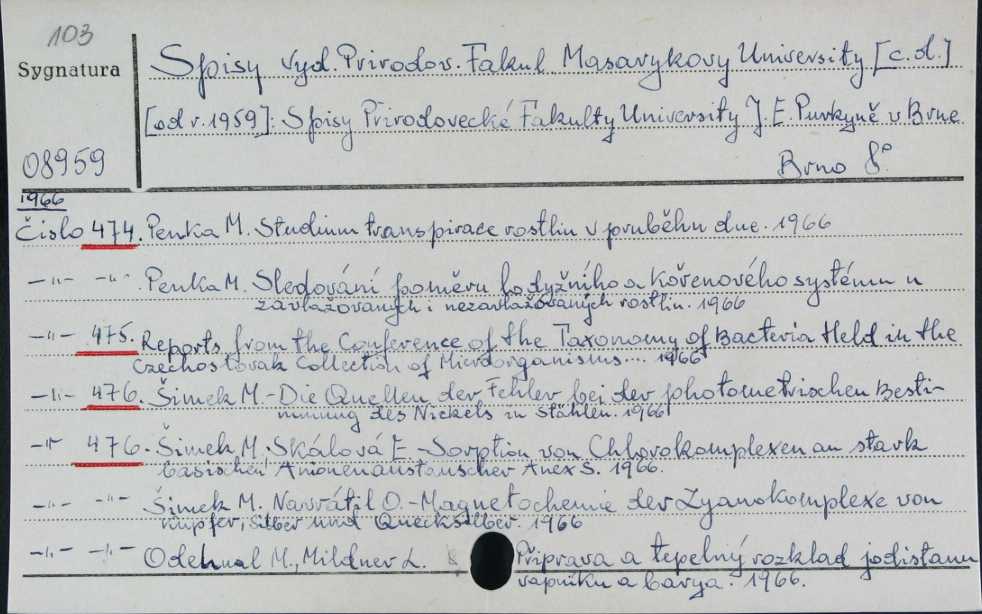 103
Sygnatura
08959
Spisy vyd. Prirodov. Fakul. Masarykovy University [c.d.]
[od r. 1959]: Spisy Přirodovecké Fakulty University J. E. Purkyně v Brne
Brno 8°
1966
Čislo 474. Penka M. Studium transpirace rostlin v průběhu dne. 1966
-"- -"- Penka M. Sledování poměru lodyžního a kořenového systému u
zavlažovaných i nezavlažovaných rostlin. 1966
-"- 475. Reports from the Conference of the Taxonomy of Bacteria Held in the
Czechoslovak Collection of Microorganisms... 1966
-"- 476. Šimek M.-Die Quellen der Fehler bei der photometrischen Besti-
mmung des Nickels in Stählen. 1966
-"- 476. Šimek M. Skálová E.-Sorption von Chlorokomplexen an stark
basischen Anionenaustauscher Anex S. 1966.
-"- -"- Šimek M. Navrátil O.-Magnetochemie der Zyanokomplexe von
Kupfer, Silber und Quecksilber. 1966
-"- -"- Odehnal M., Mildner L. Připrava a tepelný rozklad jodistanu
vapniku a barya. 1966.